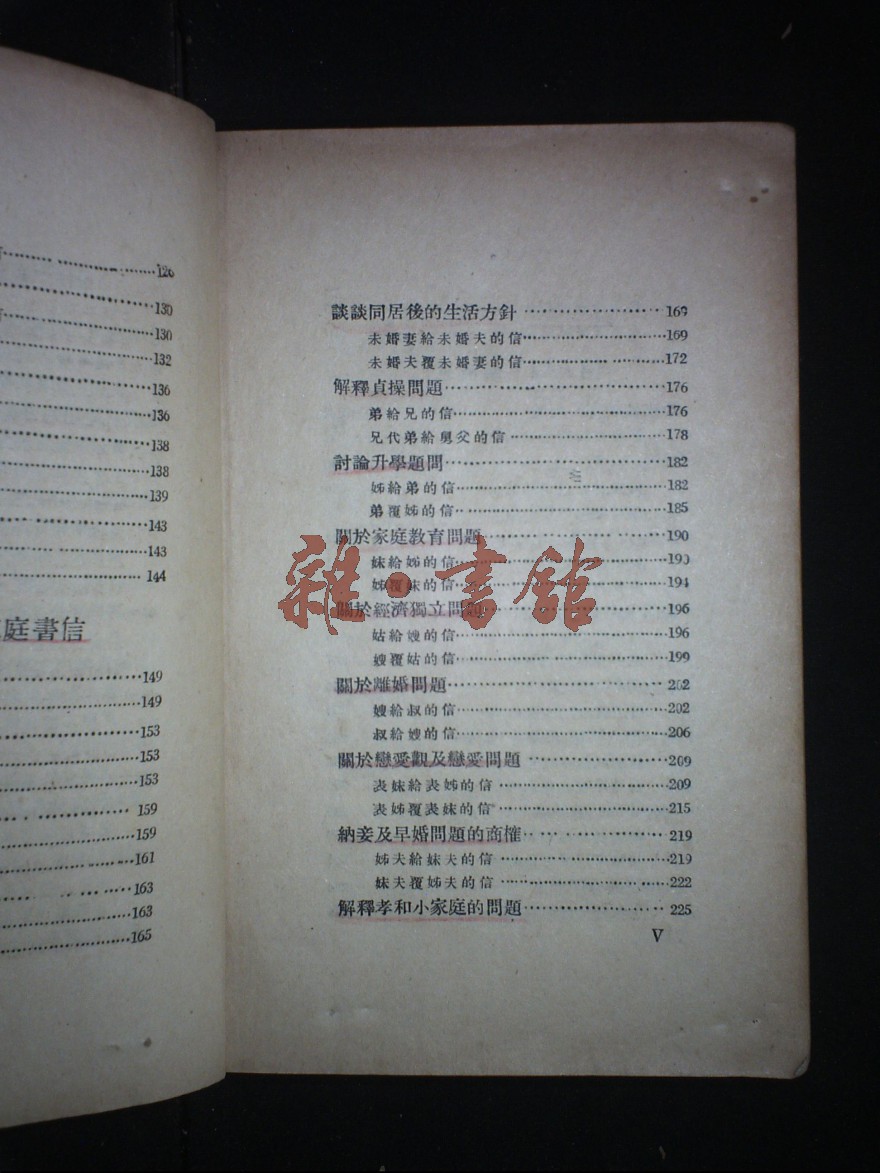 126
130
130
132
136
136
138
138
139
143
143
144
庭書信
149
149
153
153
153
159
159
161
163
163
165
談談同居後的生活方針……………………169
未婚妻給未婚夫的信……………………169
未婚夫覆未婚妻的信……………………172
解釋貞操問題……………………176
弟給兄的信……………………176
兄代弟給舅父的信……………………178
討論升學題問……………………182
姊給弟的信……………………182
弟覆姊的信……………………185
關於家庭教育問題……………………190
妹給姊的信……………………190
姊覆妹的信……………………194
關於經濟獨立問題……………………196
姑給嫂的信……………………196
嫂覆姑的信……………………199
關於離婚問題……………………202
嫂給叔的信……………………202
叔給嫂的信……………………206
關於戀愛觀及戀愛問題……………………209
表妹給表姊的信……………………209
表姊覆表妹的信……………………215
納妾及早婚問題的商榷……………………219
姊夫給妹夫的信……………………219
妹夫覆姊夫的信……………………222
解釋孝和小家庭的問題……………………225
V
雜·書館